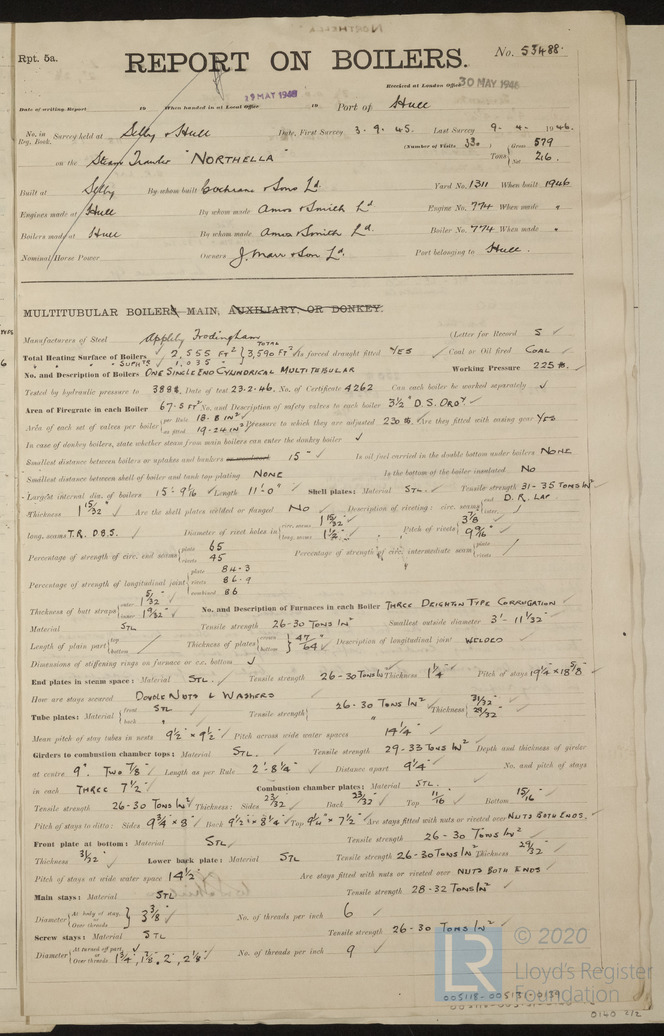 Rpt. 5a.
REPORT ON BOILERS.
No. 53488.
19 MAY 1948
Received at London Office 30 MAY 1946
Date of writing Report 19 When handed in at Local Office 19 Port of Hull
No. in Reg. Book. Survey held at Selby & Hull Date, First Survey 3.9.45. Last Survey 9.4.1946.
(Number of Visits 33)
on the Steam Trawler "NORTHELLA" Tons Gross 579 Net 216.
Built at Selby By whom built Cochrane & Sons Ld. Yard No. 1311 When built 1946
Engines made at Hull By whom made Amos & Smith Ld. Engine No. 774 When made "
Boilers made at Hull By whom made Amos & Smith Ld. Boiler No. 774 When made "
Nominal Horse Power Owners J. Marr & Son Ld. Port belonging to Hull.
MULTITUBULAR BOILERS MAIN, AUXILIARY, OR DONKEY.
Manufacturers of Steel Appleby Frodingham (Letter for Record S
Total Heating Surface of Boilers 2,555 FT² TOTAL 3,590 FT² Is forced draught fitted YES Coal or Oil fired COAL
" " " SUPHTR 1,035 "
No. and Description of Boilers ONE SINGLE END CYLINDRICAL MULTITUBULAR Working Pressure 225 lb.
Tested by hydraulic pressure to 388 lb. Date of test 23.2.46. No. of Certificate 4262 Can each boiler be worked separately ✓
Area of Firegrate in each Boiler 67.5 FT² No. and Description of safety valves to each boiler 3½" D.S. ORDY.
Area of each set of valves per boiler per Rule 18.8 IN² as fitted 19.24 IN² Pressure to which they are adjusted 230 lb. Are they fitted with easing gear YES
In case of donkey boilers, state whether steam from main boilers can enter the donkey boiler ✓
Smallest distance between boilers or uptakes and bunkers 15" Is oil fuel carried in the double bottom under boilers NONE
Smallest distance between shell of boiler and tank top plating NONE Is the bottom of the boiler insulated NO
Largest internal dia. of boilers 15'-9 1/16" Length 11'-0" Shell plates: Material STL. Tensile strength 31-35 TONS IN²
Thickness 1 15/32" Are the shell plates welded or flanged NO Description of riveting: circ. seams end D.R. LAP inter. /
long. seams T.R. D.B.S. Diameter of rivet holes in circ. seams 1 15/32" long. seams 1 ½" Pitch of rivets 3 7/8 9 9/16"
Percentage of strength of circ. end seams plate 65 rivets 45 Percentage of strength of circ. intermediate seam plate rivets /
Percentage of strength of longitudinal joint plate 84.3 rivets 86.9 combined 86
Thickness of butt straps outer 1 5/32" inner 1 9/32" No. and Description of Furnaces in each Boiler THREE DEIGHTON TYPE CORRUGATION
Material STL Tensile strength 26-30 TONS IN² Smallest outside diameter 3'-11/32"
Length of plain part top bottom / Thickness of plates crown bottom 47/64" Description of longitudinal joint WELDED
Dimensions of stiffening rings on furnace or c.c. bottom ✓
End plates in steam space: Material STL. Tensile strength 26-30 TONS IN² Thickness 1¼" Pitch of stays 19¼" x 18 5/8"
How are stays secured DOUBLE NUTS & WASHERS
Tube plates: Material front back STL " Tensile strength 26-30 TONS IN² " Thickness 31/32" 29/32"
Mean pitch of stay tubes in nests 9½" x 9½" Pitch across wide water spaces 14¼"
Girders to combustion chamber tops: Material STL. Tensile strength 29-33 TONS IN² Depth and thickness of girder
at centre 9". TWO 7/8" Length as per Rule 2'-8¼" Distance apart 9¼" No. and pitch of stays
in each THREE 7½" Combustion chamber plates: Material STL.
Tensile strength 26-30 TONS IN² Thickness: Sides 23/32" Back 23/32" Top 11/16" Bottom 15/16"
Pitch of stays to ditto: Sides 9¾" x 8" Back 9½" x 8¼" Top 9¼" x 7½" Are stays fitted with nuts or riveted over NUTS BOTH ENDS.
Front plate at bottom: Material STL Tensile strength 26-30 TONS IN²
Thickness 31/32" Lower back plate: Material STL Tensile strength 26-30 TONS IN² Thickness 29/32"
Pitch of stays at wide water space 14½" Are stays fitted with nuts or riveted over NUTS BOTH ENDS
Main stays: Material STL Tensile strength 28-32 TONS IN²
Diameter At body of stay, or Over threads 3 3/8" No. of threads per inch 6
Screw stays: Material STL Tensile strength 26-30 TONS IN²
Diameter At turned off part, or Over threads 1¾", 1 7/8", 2", 2 1/8" No. of threads per inch 9
© 2020
LR
Lloyd's Register
Foundation
005118-005131-0139
0140 2/2